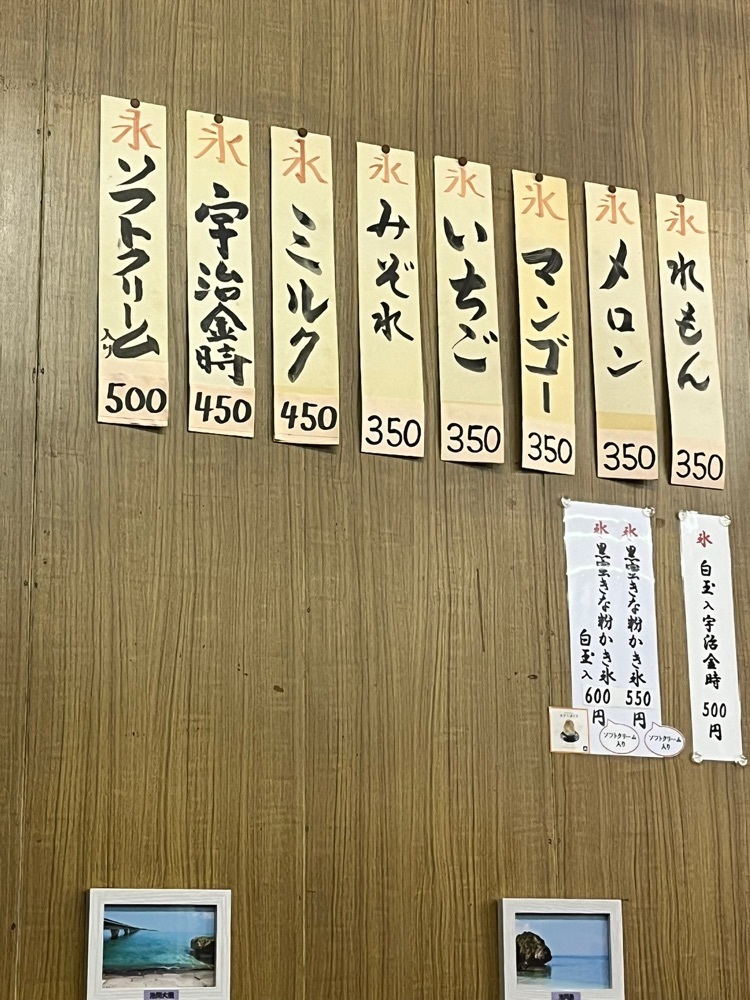 氷 れもん 350
氷 メロン 350
氷 マンゴー 350
氷 いちご 350
氷 みぞれ 350
氷 ミルク 450
氷 宇治金時 450
氷 ソフトクリーム入り 500
氷 白玉入宇治金時 500円
氷 黒蜜きな粉かき氷 550円
ソフトクリーム
入り
氷 黒蜜きな粉かき氷
白玉入 600円
ソフトクリーム
入り
池間大橋